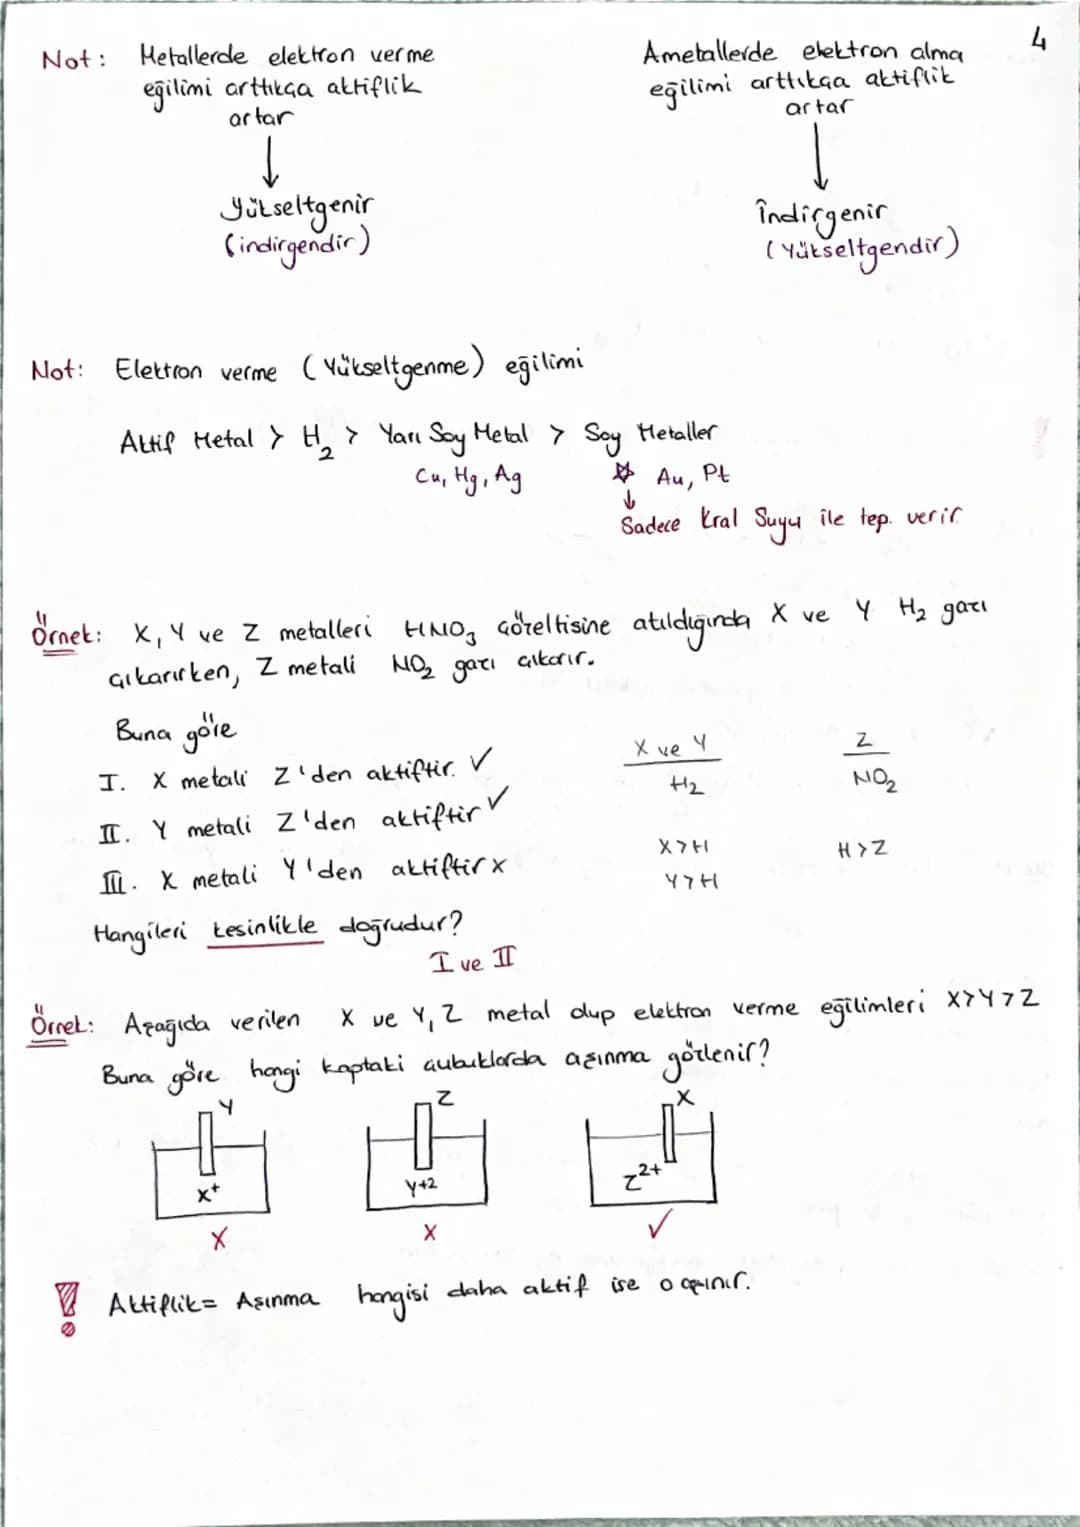 4
Not: Metallerde elektron verme
eğilimi arttıkça aktiflik
artar
↓
Yükseltgenir
(indirgendir)
Ametallerde elektron alma
eğilimi arttıkça aktiflik
artar
↓
İndirgenir
(Yükseltgendir)
Not: Elektron verme (Yükseltgenme) eğilimi
Aktif Metal > H₂ > Yarı Soy Metal > Soy Metaller
Cu, Hg, Ag ☆ Au, Pt
↓
Sadece Kral Suyu ile tep. verir.
Örnek: X, Y ve Z metalleri HNO₃ çözeltisine atıldığında X ve Y H₂ gazı
çıkarırken, Z metali NO₂ gazı çıkarır.
Buna göre
I. X metali Z'den aktiftir. ✓
II. Y metali Z'den aktiftir ✓
III. X metali Y'den aktiftir x
Hangileri kesinlikle doğrudur?
I ve II
X ve Y
H₂
X>H
Y>H
Z
NO₂
H>Z
Örnek: Aşağıda verilen X ve Y, Z metal olup elektron verme eğilimleri X>Y>Z
Buna göre hangi kaptaki çubuklarda aşınma gözlenir?
Y Z X
X⁺ Y⁺² Z²⁺
X X ✓
! Aktiflik= Aşınma hangisi daha aktif ise o aşınır.